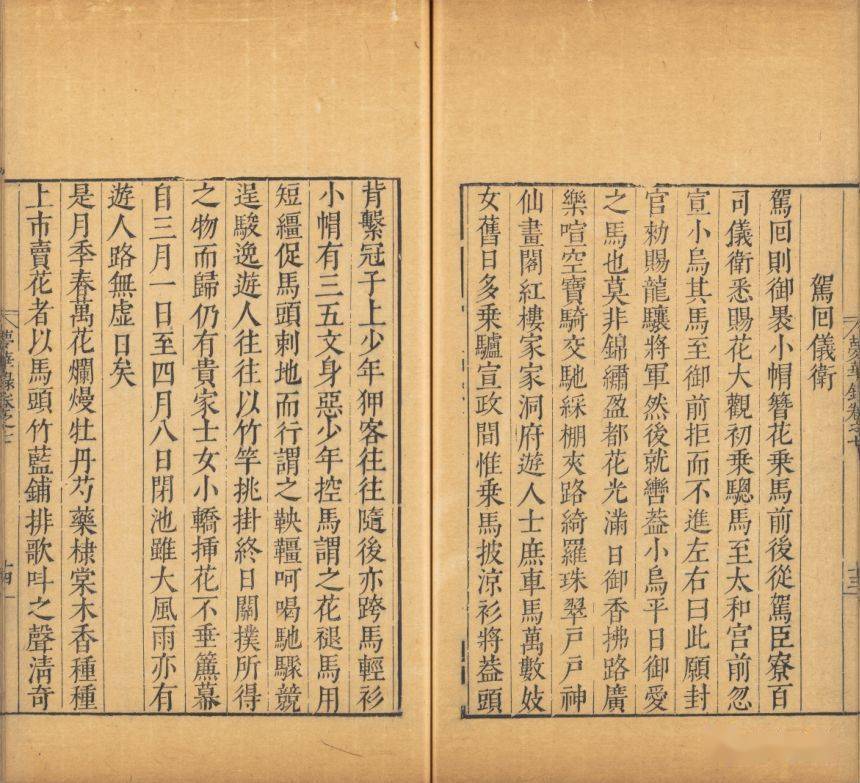 駕回儀衛
駕回則御褁小帽簪花乗馬前後從駕臣寮百
司儀衛悉賜花大觀初乗驄馬至太和宫前忽
宣小烏其馬至御前拒而不進左右曰此願封
官勑賜龍驤將軍然後就轡葢小烏平日御愛
之馬也莫非錦繡盈都花光滿目御香拂路廣
樂喧空寶騎交馳綵棚夾路綺羅珠翠戸戸神
仙畫閣紅樓家家洞府遊人士庶車馬萬數妓
女舊日多乗驢宣政間惟乗馬披凉衫將葢頭
背繫冠子上少年狎客往往隨後亦跨馬輕衫
小帽有三五文身惡少年控馬謂之花褪馬用
短繮促馬頭刺地而行謂之鞅韁呵喝馳驟競
逞駿逸遊人往往以竹竿挑掛終日關撲所得
之物而歸仍有貴家士女小轎揷花不垂簾幕
自三月一日至四月八日閉池雖大風雨亦有
遊人路無虛日矣
是月季春萬花爛熳牡丹芍藥棣棠木香種種
上市賣花者以馬頭竹籃鋪排歌呌之聲清奇
夢華錄卷之七
十三
夢華錄卷之七
十四